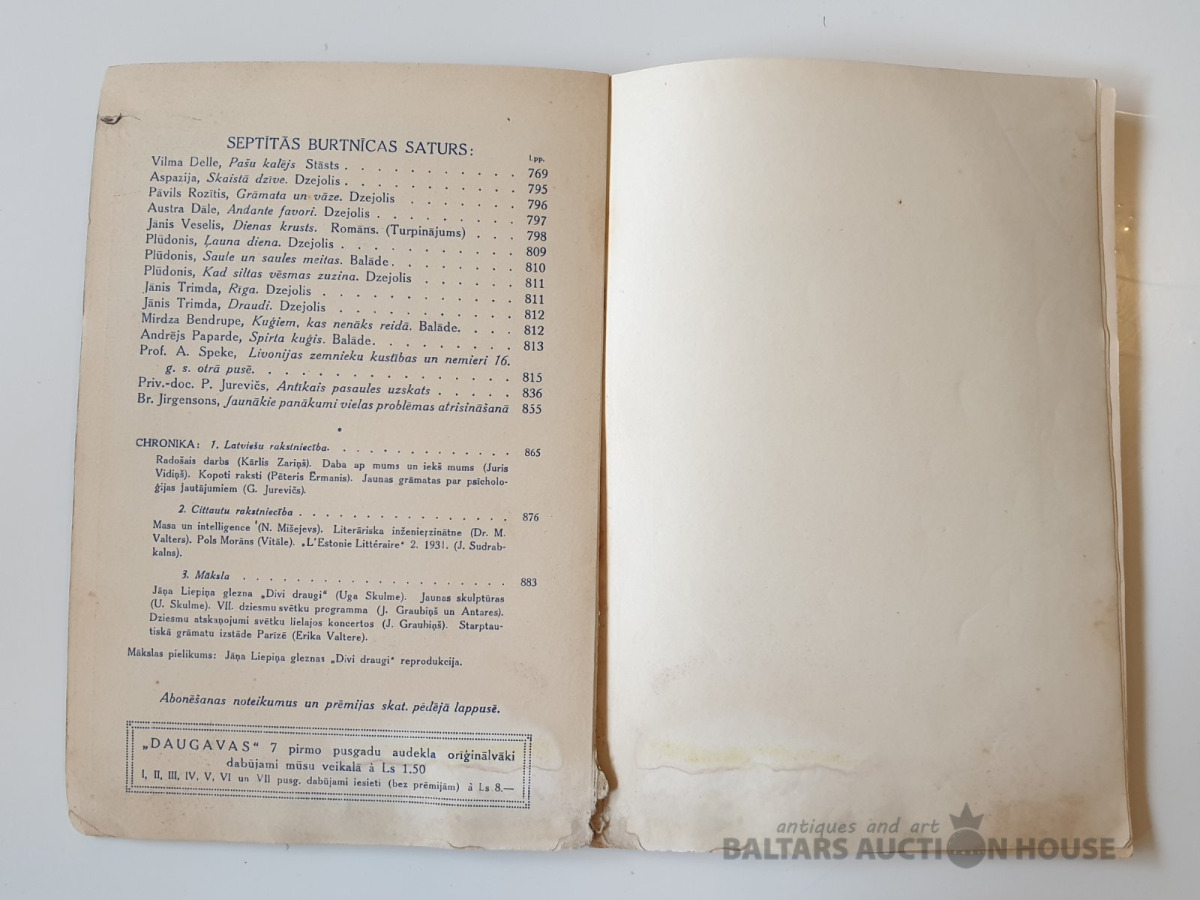 SEPTĪTĀS BURTNĪCAS SATURS:
Lpp.
Vilma Delle, Pašu kalējs Stāsts . . . . . . . . . . 769
Aspazija, Skaistā dzīve. Dzejolis . . . . . . . . . . 795
Pāvils Rozītis, Grāmata un vāze. Dzejolis . . . . . . . 796
Austra Dāle, Andante favori. Dzejolis . . . . . . . . 797
Jānis Veselis, Dienas krusts. Romāns. (Turpinājums) . . . 798
Plūdonis, Ļauna diena. Dzejolis . . . . . . . . . . 809
Plūdonis, Saule un saules meitas. Balāde . . . . . . . 810
Plūdonis, Kad siltas vēsmas zuzina. Dzejolis . . . . . . 811
Jānis Trimda, Rīga. Dzejolis . . . . . . . . . . . 811
Jānis Trimda, Draudi. Dzejolis . . . . . . . . . . 812
Mirdza Bendrupe, Kuģiem, kas nenāks reidā. Balāde. . . . 812
Andrējs Paparde, Spirta kuģis. Balāde. . . . . . . . 813
Prof. A. Speke, Livonijas zemnieku kustības un nemieri 16.
g. s. otrā pusē. . . . . . . . . . . . . . . 815
Priv.-doc. P. Jurevičs, Antīkais pasaules uzskats . . . . . 836
Br. Jirgensons, Jaunākie panākumi vielas problēmas atrisināšanā 855
*
CHRONIKA: 1. Latviešu rakstniecība. . . . . . . . . . . . . 865
Radošais darbs (Kārlis Zariņš). Daba ap mums un iekš mums (Juris
Vidiņš). Kopoti raksti (Pēteris Ērmanis). Jaunas grāmatas par psīcholo-
ģijas jautājumiem (G. Jurevičs).
2. Cittautu rakstniecība . . . . . . . . . . . . . . . 876
Masa un intelligence (N. Mišejevs). Literāriska inženieŗzinātne (Dr. M.
Valters). Pols Morāns (Vitāle). „L'Estonie Littéraire" 2. 1931. (J. Sudrab-
kalns).
3. Māksla . . . . . . . . . . . . . . . . . . . 883
Jāņa Liepiņa glezna „Divi draugi" (Uga Skulme). Jaunas skulptūras
(U. Skulme). VII. dziesmu svētku programma (J. Graubiņš un Antares).
Dziesmu atskaņojumi svētku lielajos koncertos (J. Graubiņš). Starptau-
tiskā grāmatu izstāde Parīzē (Erika Valtere).
Mākslas pielikums: Jāņa Liepiņa gleznas „Divi draugi" reprodukcija.
Abonēšanas noteikumus un prēmijas skat. pēdējā lappusē.
„DAUGAVAS" 7 pirmo pusgadu audekla orīģinālvāki
dabūjami mūsu veikalā à Ls 1.50
I, II, III, IV, V, VI un VII pusg. dabūjami iesieti (bez prēmijām) à Ls 8.—
antiques and art
BALTARS AUCTION HOUSE